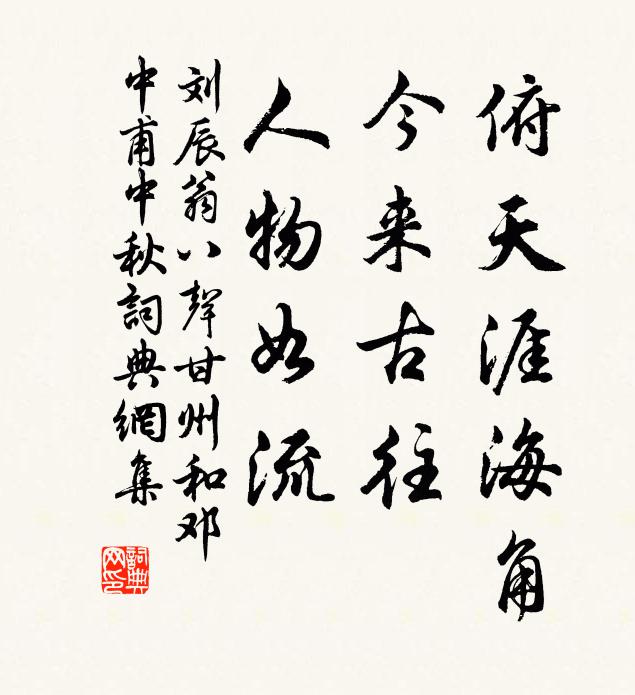 俯天涯海角
今来古往
人物如流
刘辰翁八聲甘州和邓
中甫中秋詞典網集
詞典网印